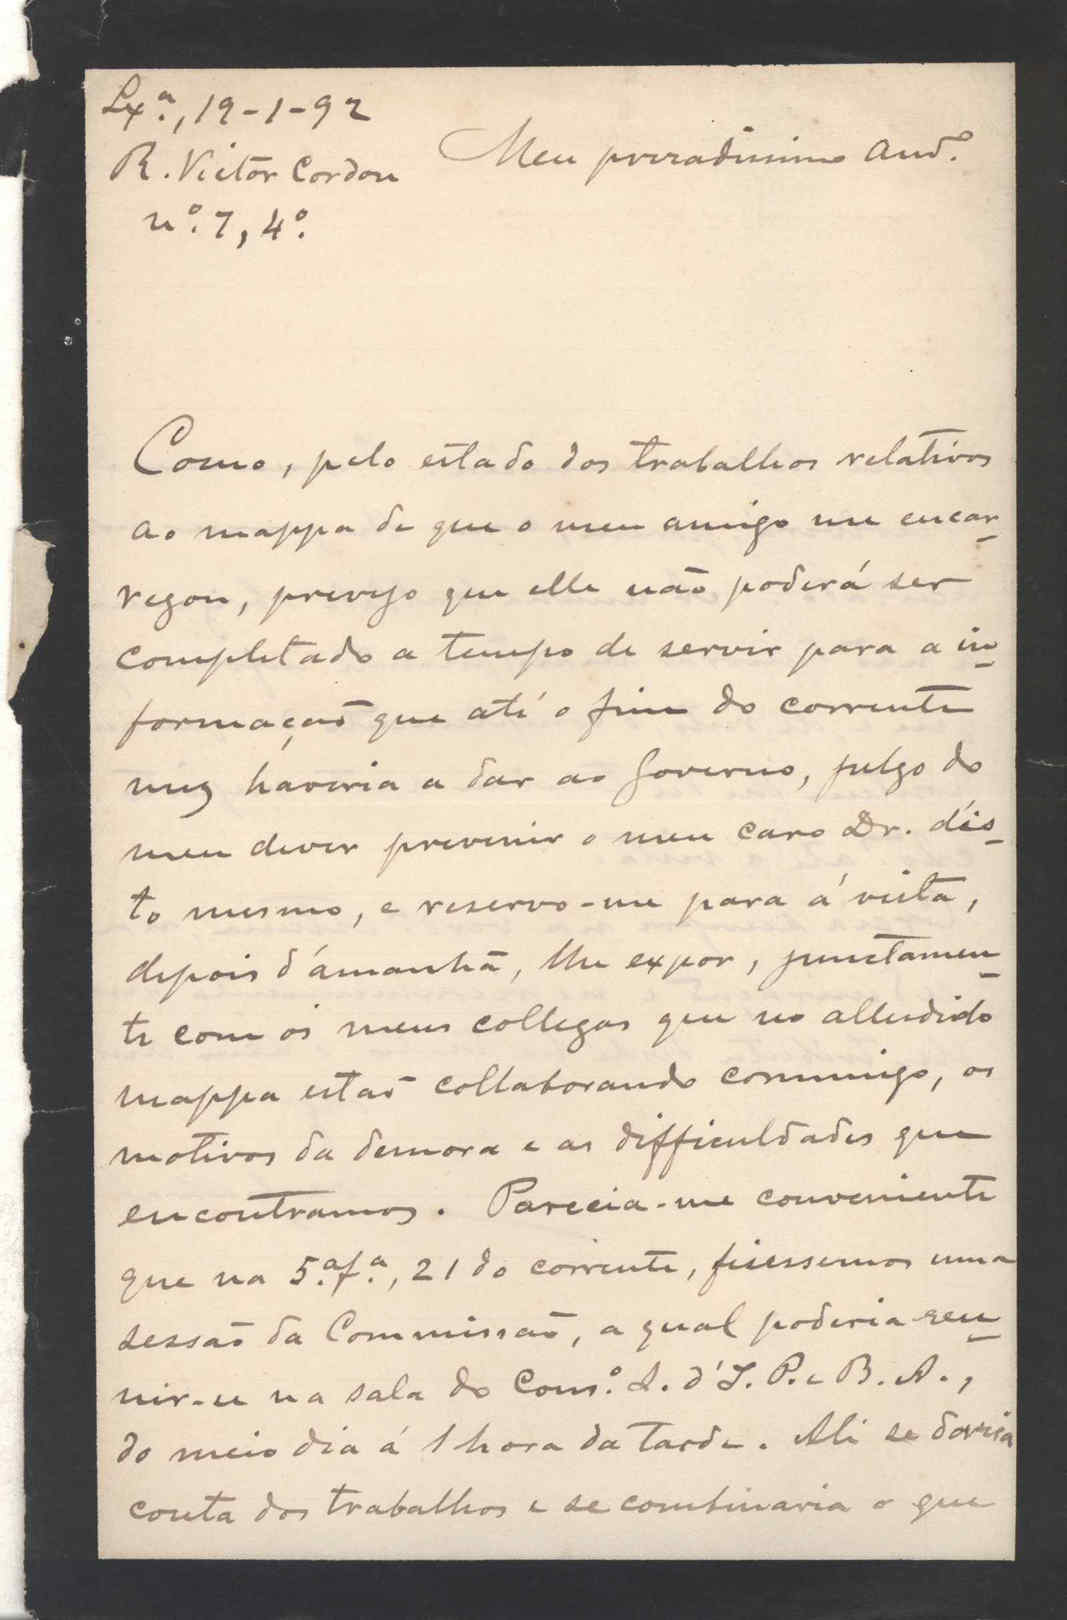 Lxª., 19-1-92
R. Victor Cordon
nº. 7, 4º.
Meu presadissimo Amº.
Como, pelo estado dos trabalhos relativos
ao mappa de que o meu amigo me encar-
regou, prevejo que elle não poderá ser
completado a tempo de servir para a in-
formação que até o fim do corrente
mez haveria a dar ao Governo, julgo do
meu dever prevenir o meu caro Dr. d'is-
to mesmo, e reservo-me para á vista,
depois d'ámanhã, lhe expor, junctamen-
te com os meus collegas que no alludido
mappa estão collaborando commigo, os
motivos da demora e as difficuldades que
encontramos. Parecia-me conveniente
que na 5.ªf.ª, 21 do corrente, fisessemos uma
sessão da Commissão, a qual poderia reu-
nir-se na sala do Cons.º S. d'I. P. e B. A.,
do meio dia á 1 hora da tarde. Ali se daria
conta dos trabalhos e se combinaria o que